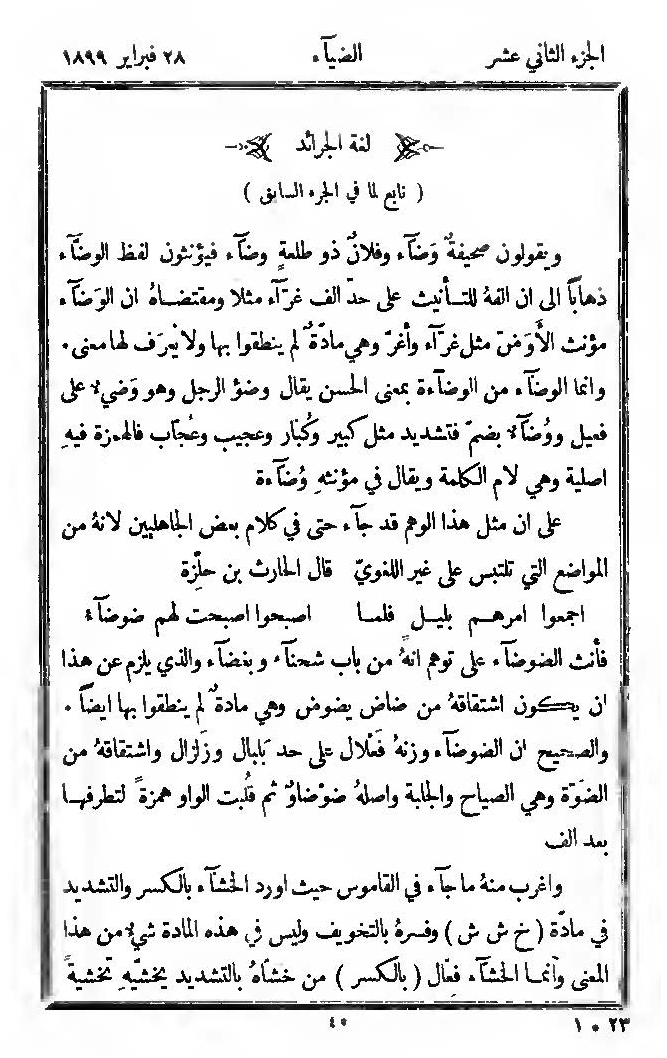 الجزء الثاني عشر الضيآء ٢٨ فبراير ١٨٩٩
لغة الجرائد
( تابع لما في الجزء السابق )
ويقولون صحيفةٌ وَضآء وفلانٌ ذو طلعةٍ وضآء فيؤنثون لفظ الوضآء
ذهاباً الى ان الفهُ للتـأنيث على حدّ الف غرّآء مثلا ومقتضـاهُ ان الوَضآء
مؤنث الأَوَضّ مثل غرّآء وأغرّ وهي مادّةٌ لم ينطقوا بها ولا يُعرَف لها معنى .
وانما الوضآء من الوضآءة بمعنى الحسن يقال وضؤ الرجل وهو وَضيءٌ على
فعيل ووُضآءٌ بضمّ فتشديد مثل كبير وكُبّار وعجيب وعُجّاب فالهمزة فيهِ
اصلية وهي لام الكلمة ويقال في مؤنثهِ وُضآءة
على ان مثل هذا الوهم قد جآء حتى في كلام بعض الجاهليين لانهُ من
المواضع التي تلتبس على غير اللغويّ قال الحارث بن حلِّزة
اجمعوا امرهـم بليـل فلمـا اصبحوا اصبحت لهم ضوضآء
فأنث الضوضآء على توهم انهُ من باب شحنآء وبغضآء والذي يلزم عن هذا
ان يكون اشتقاقهُ من ضاض يضوض وهي مادةٌ لم ينطقوا بها ايضاً .
والصحيح ان الضوضآء وزنهُ فَعْلال على حد بَلْبال وزَلزال واشتقاقهُ من
الضوّة وهي الصياح والجلبة واصلهُ ضوْضاوٌ ثم قُلبت الواو همزةً لتطرفهـا
بعد الف
واغرب منهُ ما جآء في القاموس حيث اورد الخشآء بالكسر والتشديد
في مادّة ( خ ش ش ) وفسرهُ بالتخويف وليس في هذه المادة شيءٌ من هذا
المعنى وانمـا الخشآء فِعّال ( بالكسر ) من خشّاهُ بالتشديد يخشّيهِ تخشيةً
٤٥
١ ٠ ٢٣